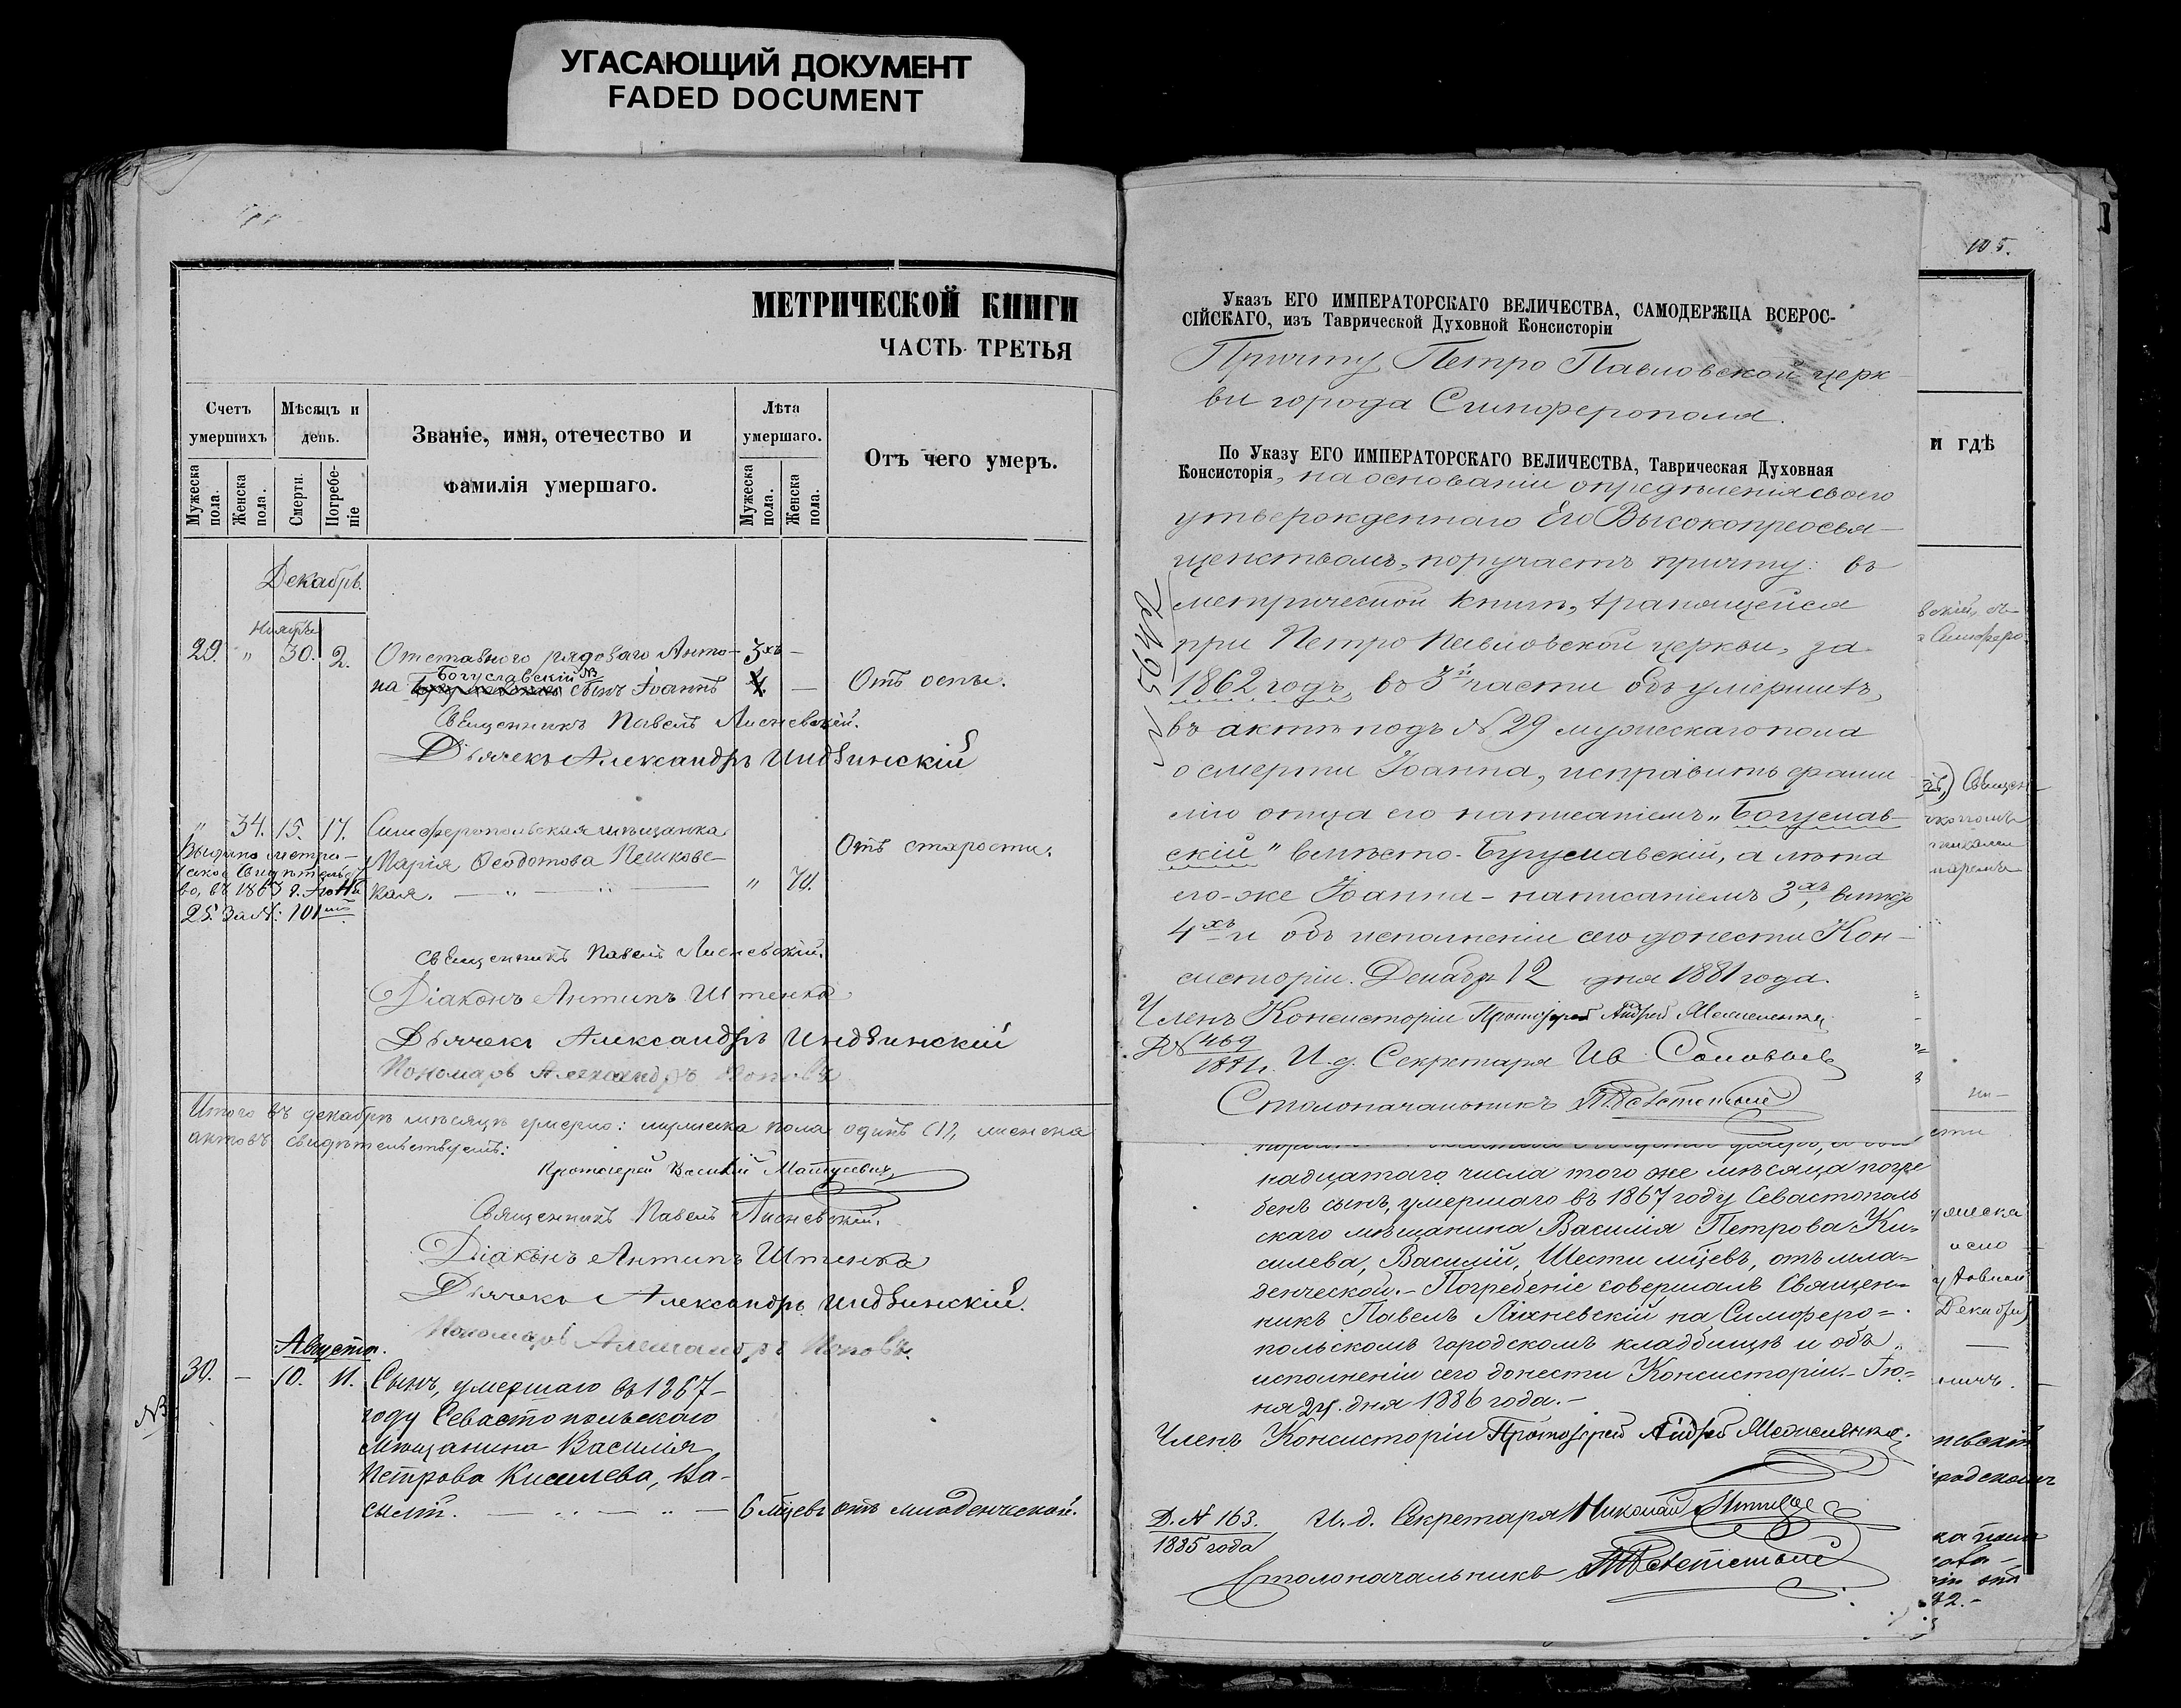 УГАСАЮЩИЙ ДОКУМЕНТ
FADED DOCUMENT
МЕТРИЧЕСКОЙ КНИГИ
ЧАСТЬ ТРЕТЬЯ
Счетъ умершихъ
Мѣсяцъ и день.
Званіе, имя, отечество и фамилія умершаго.
Лѣта умершаго.
Отъ чего умеръ.
Мужеска пола.
Женска пола.
Смерти.
Погребеніе
Мужеска пола.
Женска пола.
Декабрь.
Ноябрь
29. " 30. 2. Отставного рядоваго Анто- 3хъ —
Богуславскій NB
на сынъ Іоаннъ — Отъ оспы.
Священникъ Павелъ Лисневскій.
Дьячекъ Александръ Индвинскій
" 34. 15. 17. Симферопольская мѣщанка Отъ старости.
Марія Ѳеодотова Пешковс-
кая. — " — " — " 70.
Выдано метри-
ческое свидѣтельст
во, въ 1863 г.
25. За №: 101
Священникъ Павелъ Лисневскій.
Діаконъ Антипъ Штенко
Дьячекъ Александръ Индвинскій
Пономарь Александръ Поповъ
Итого въ декабрѣ мѣсяцѣ умерло: мужеска пола одинъ (1), женска
актовъ свидѣтельствуемъ:
Протоіерей Василій Матусевичъ
Священникъ Павелъ Лисневскій.
Діаконъ Антипъ Штенко
Дьячекъ Александръ Индвинскій.
Пономарь Александръ Поповъ.
Августъ.
30. — 10. 11. Сынъ, умершаго въ 1867-
NB
году Севастопольскаго
Мѣщанина Василія
Петрова Киселева, Ва-
силій. — " — " — 6 мцевъ отъ младенческой.
105.
Указъ ЕГО ИМПЕРАТОРСКАГО ВЕЛИЧЕСТВА, САМОДЕРЖЦА ВСЕРОС-
СІЙСКАГО, изъ Таврической Духовной Консисторіи
Причту Петро Павловской церк
ви города Симферополя.
По Указу ЕГО ИМПЕРАТОРСКАГО ВЕЛИЧЕСТВА, Таврическая Духовная
Консисторія, на основаніи опредѣленія своего
утвержденнаго Его Высокопреосвя-
щенствомъ, поручаетъ причту: въ
метрической книгѣ, хранящейся
при Петро Павловской церкви, за
1862 годъ, въ 3й части объ умершихъ,
въ актѣ подъ № 29 мужескаго пола
о смерти Іоанна, исправить фами
лію отца его написаніемъ „Богуслав-
скій" вмѣсто - Бугуславскій, а лѣта
его-же Іоанна - написаніемъ 3хъ, вмѣсто
4хъ и объ исполненіи сего донести Кон-
систоріи. Декабря 12 дня 1881 года.
Членъ Консисторіи Протоіерей Андрей
№ 469
И. д. Секретаря Ив. Соловьев
Столоначальникъ
надцатаго числа того же мѣсяца погре
бенъ сынъ, умершаго въ 1867 году Севастополь
скаго мѣщанина Василія Петрова Ки-
силева, Василій, Шести мцевъ, отъ мла-
денческой. - Погребеніе совершалъ Священ-
никъ Павелъ Лисневскій на Симферо-
польскомъ городскомъ кладбищѣ и объ
исполненіи сего донести Консисторіи. - Ію-
ня 24. дня 1886 года. -
Членъ Консисторіи Протоіерей Андрей
Д. № 163.
1885 года
И. д. Секретаря Николай
Столоначальникъ
и гдѣ